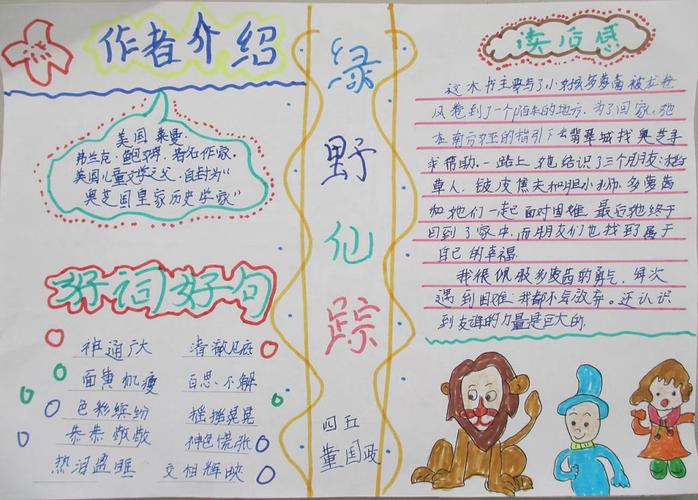 作者介绍
美国 莱曼·
弗兰克·鲍姆 著名作家,
美国儿童文学之父,自封为"
奥芝国皇家历史学家"
好词好句
神通广大 清澈见底
面黄肌瘦 百思不解
色彩缤纷 摇摇晃晃
恭恭敬敬 神色慌张
热泪盈眶 交相辉映
绿
野
仙
踪
四五
董国政
读后感
这本书主要写了小女孩多萝茜被龙卷
风卷到了一个陌生的地方,为了回家,她
在南方女巫的指引下去翡翠城找奥芝寻
求帮助,一路上,她结识了三个朋友:稻
草人、铁皮樵夫和胆小狮,多萝茜
和她们一起面对困难,最后她终于
回到了家中,而朋友们也找到属于
自己的幸福.
我很佩服多萝茜的勇气,每次
遇到困难,我都不会放弃。还认识
到友谊的力量是巨大的.